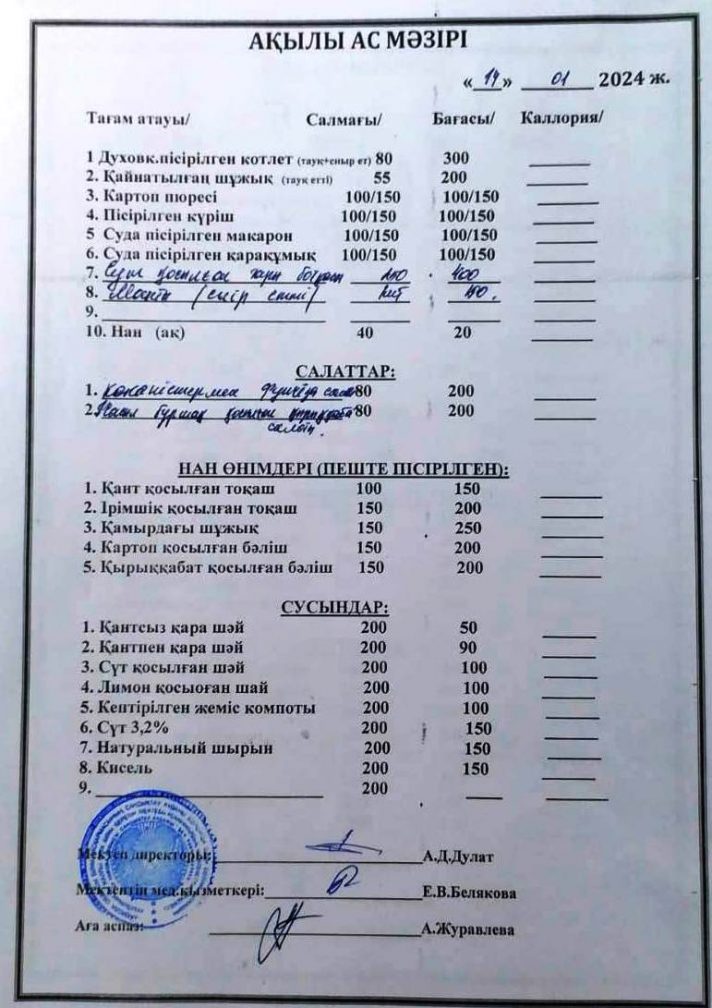 АҚЫЛЫ АС МӘЗІРІ
«19» 01 2024 ж.
Тағам атауы/ Салмағы/ Бағасы/ Каллория/
1 Духовк.пісірілген котлет (тауқ+сиыр ет) 80 300
2. Қайнатылғаң шұжық (тауқ етті) 55 200
3. Картоп пюресі 100/150 100/150
4. Пісірілген күріш 100/150 100/150
5 Суда пісірілген макарон 100/150 100/150
6. Суда пісірілген қарақұмық 100/150 100/150
7. 400
8.
9.
10. Нан (ақ) 40 20
САЛАТТАР:
1. 80 200
2. бұршақ 80 200
НАН ӨНІМДЕРІ (ПЕШТЕ ПІСІРІЛГЕН):
1. Қант қосылған тоқаш 100 150
2. Ірімшік қосылған тоқаш 150 200
3. Қамырдағы шұжық 150 250
4. Картоп қосылған бәліш 150 200
5. Қырыққабат қосылған бәліш 150 200
СУСЫНДАР:
1. Қантсыз қара шәй 200 50
2. Қантпен қара шәй 200 90
3. Сүт қосылған шәй 200 100
4. Лимон қосыоған шай 200 100
5. Кептірілген жеміс компоты 200 100
6. Сүт 3,2% 200 150
7. Натуральный шырын 200 150
8. Кисель 200 150
9. 200
Мектеп директоры: А.Д.Дулат
Мектептің мед.қызметкері: Е.В.Белякова
Аға аспаз: А.Журавлева